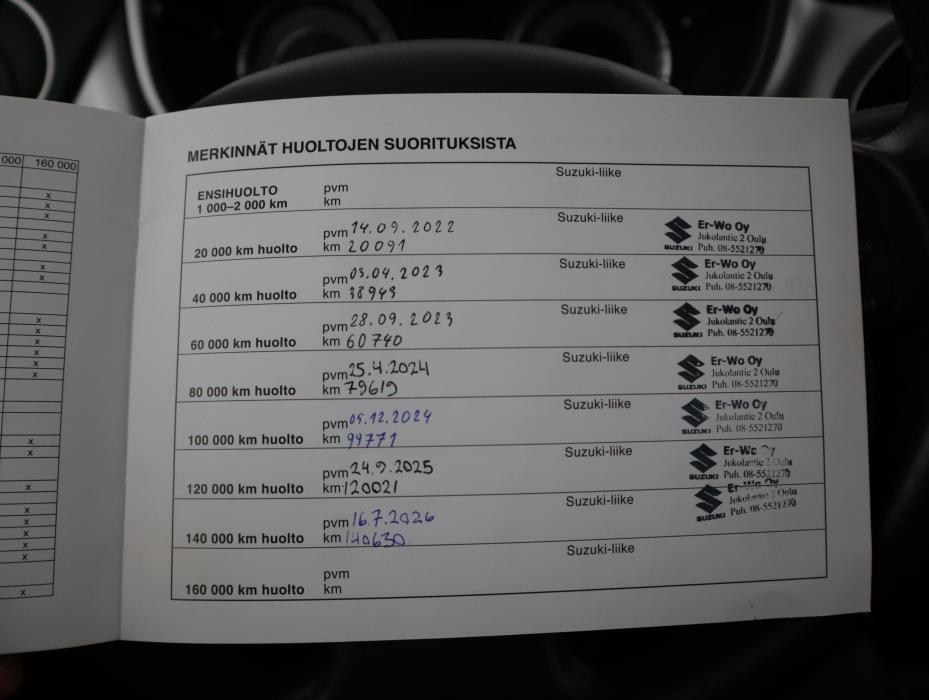 000 160 000
MERKINNÄT HUOLTOJEN SUORITUKSISTA
ENSIHUOLTO
1 000–2 000 km
pvm
km
Suzuki-liike
20 000 km huolto
pvm 14.09.2022
km 20091
Suzuki-liike
SUZUKI
Er-Wo Oy
Jukolantie 2 Oulu
Puh. 08-5521270
40 000 km huolto
pvm 03.04.2023
km 38943
Suzuki-liike
SUZUKI
Er-Wo Oy
Jukolantie 2 Oulu
Puh. 08-5521270
60 000 km huolto
pvm 28.09.2023
km 60740
Suzuki-liike
SUZUKI
Er-Wo Oy
Jukolantie 2 Oulu
Puh. 08-5521270
80 000 km huolto
pvm 25.4.2024
km 79619
Suzuki-liike
SUZUKI
Er-Wo Oy
Jukolantie 2 Oulu
Puh. 08-5521270
100 000 km huolto
pvm 05.12.2024
km 99771
Suzuki-liike
SUZUKI
Er-Wo Oy
Jukolantie 2 Oulu
Puh. 08-5521270
120 000 km huolto
pvm 24.9.2025
km 120021
Suzuki-liike
SUZUKI
Er-Wo Oy
Jukolantie 2 Oulu
Puh. 08-5521270
140 000 km huolto
pvm 16.7.2026
km 140630
Suzuki-liike
SUZUKI
Er-Wo Oy
Jukolantie 2 Oulu
Puh. 08-5521270
160 000 km huolto
pvm
km
Suzuki-liike